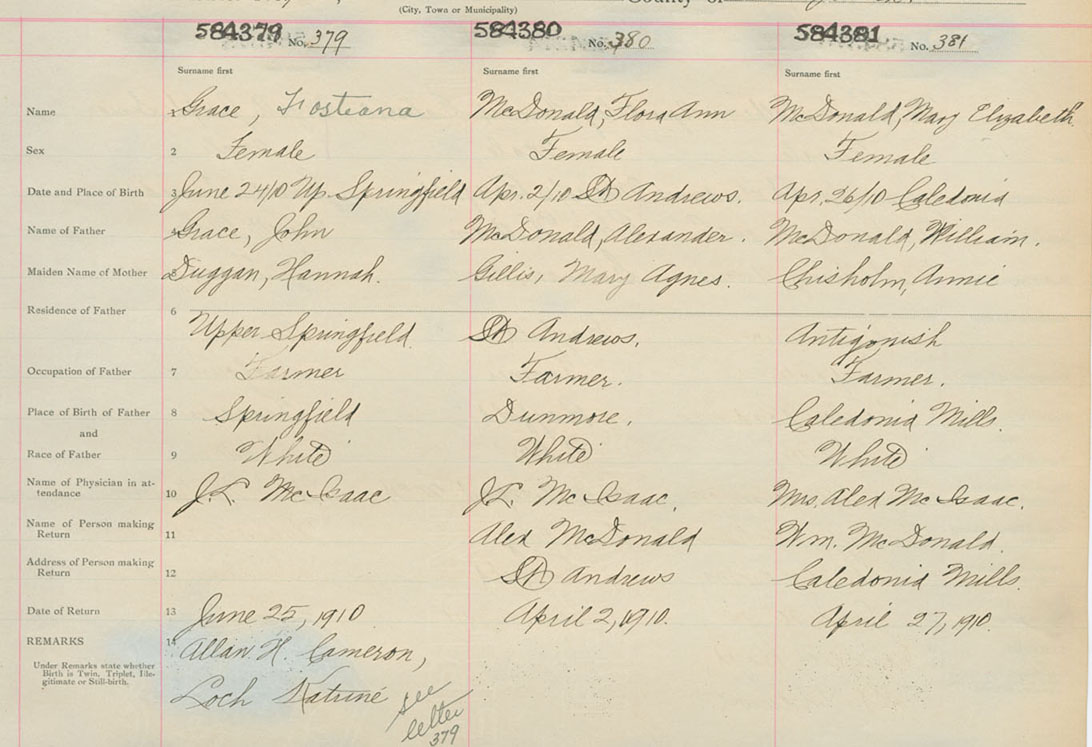 (City, Town or Municipality)
County of
584379 No. 379
584380 No. 380
584381 No. 381
Surname first
Surname first
Surname first
Name 1 Grace, Frostiana
McDonald, Flora Ann
McDonald, Mary Elizabeth
Sex 2 Female
Female
Female
Date and Place of Birth 3 June 24/10 Up. Springfield
Apr. 2/10 St Andrews.
Apr. 26/10 Caledonia
Name of Father Grace, John
McDonald, Alexander.
McDonald, William.
Maiden Name of Mother Duggan, Hannah.
Gillis, Mary Agnes.
Chisholm, Annie
Residence of Father 6
Upper Springfield
St Andrews.
Antigonish
Occupation of Father 7 Farmer
Farmer.
Farmer.
Place of Birth of Father 8 Springfield
Dunmore.
Caledonia Mills.
and
Race of Father 9 White
White
White
Name of Physician in at-
tendance 10 J.L. McIsaac
J.L. McIsaac.
Mrs. Alex McIsaac.
Name of Person making
Return 11
Alex McDonald
Wm. McDonald.
Address of Person making
Return 12
St Andrews
Caledonia Mills.
Date of Return 13 June 25, 1910
April 2, 1910.
April 27, 1910.
REMARKS 14 Allan H. Cameron,
Under Remarks state whether
Birth is Twin, Triplet, Ille-
gitimate or Still-birth.
Loch Katrine
see
letter
379